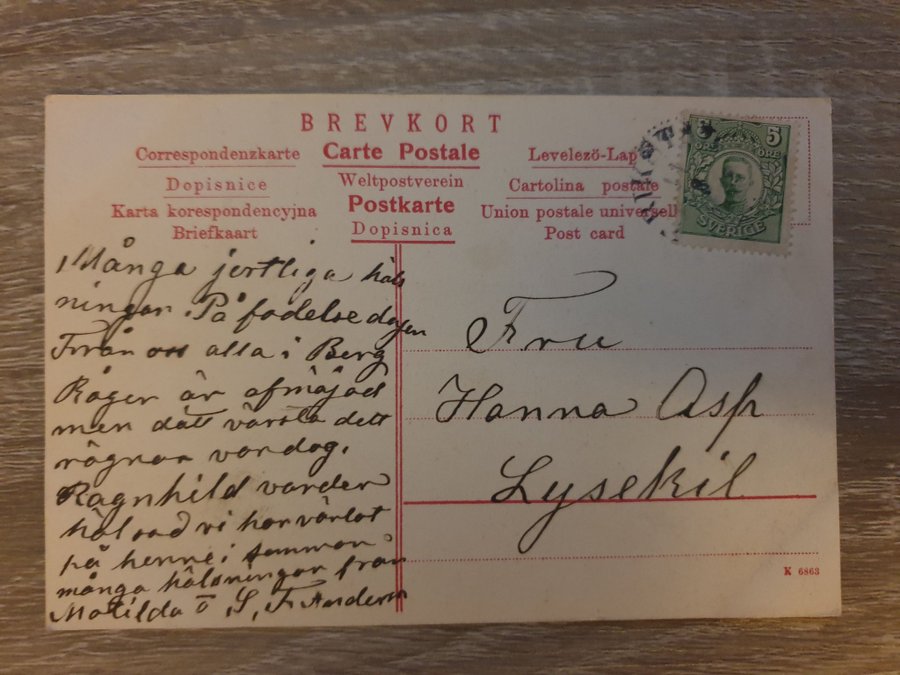 BREVKORT
Correspondenzkarte Carte Postale Levelező-Lap
Dopisnice Weltpostverein Cartolina postale
Karta korespondencyjna Postkarte Union postale universell
Briefkaart Dopisnica Post card
5 5
ÖRE ÖRE
SVERIGE
Många jertliga häls
ningar På fodelsedagen
Från oss alla i Berg
Råger är afmäjad
men dätt värsta dett
rägnar vardag.
Ragnhild varder
hälsad vi har väntat
på henne i sommar
många hälsningar från
Matilda o S, F Anderson
Fru
Hanna Asp
Lysekil
K 6863